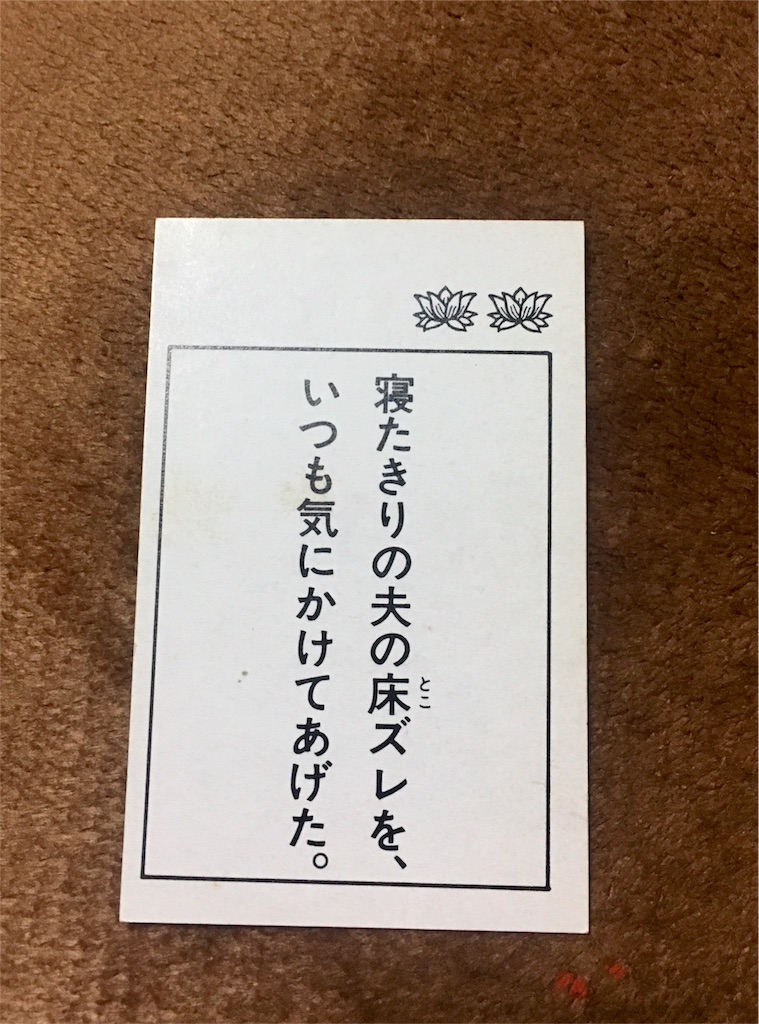 寝たきりの夫の床ズレを、
とこ
いつも気にかけてあげた。